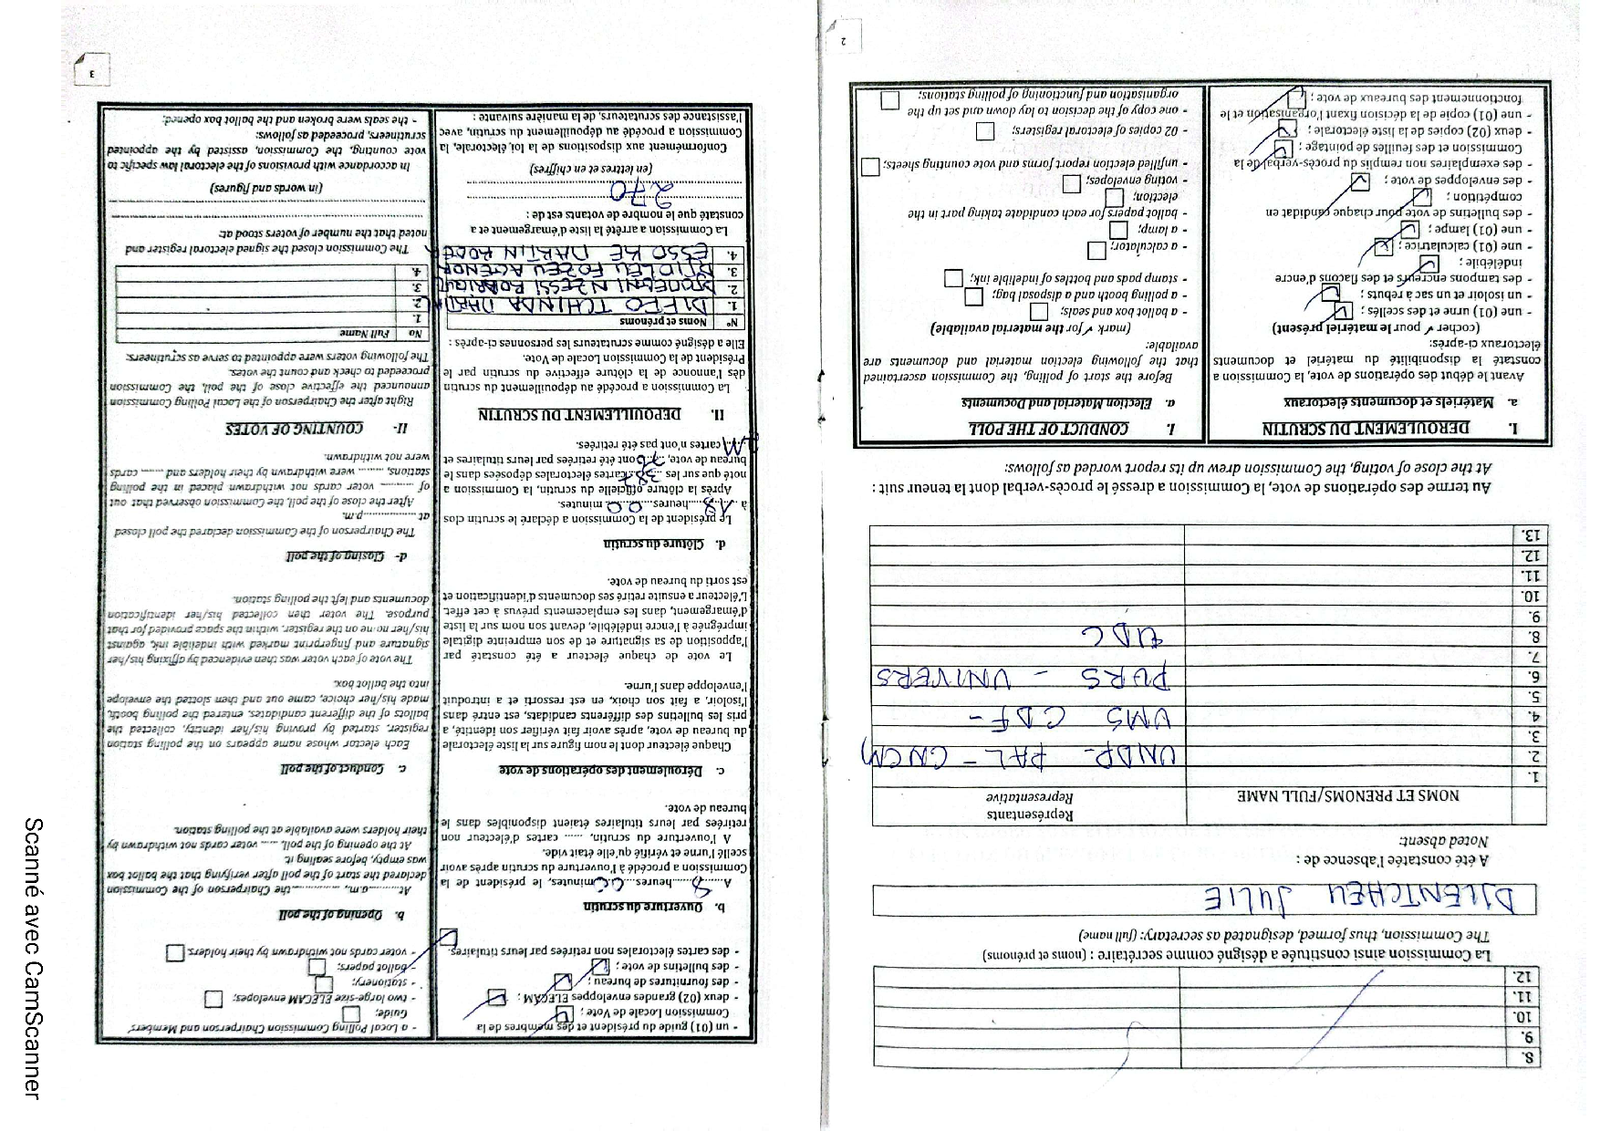 8.
9.
10.
11.
12.
La Commission ainsi constituée a désigné comme secrétaire : (noms et prénoms)
The Commission, thus formed, designated as secretary: (full name)
DJLENTCHEU JULIE
A été constatée l'absence de :
Noted absent:
NOMS ET PRENOMS/FULL NAME
Représentants
Representative
1.
2. UNDP - PAL - CNCM)
3.
4. UMS CDF -
5.
6. PURS - UNIVERS
7.
8. UDC
9.
10.
11.
12.
13.
Au terme des opérations de vote, la Commission a dressé le procès-verbal dont la teneur suit :
At the close of voting, the Commission drew up its report worded as follows:
I. DEROULEMENT DU SCRUTIN
a. Matériels et documents électoraux
Avant le début des opérations de vote, la Commission a
constaté la disponibilité du matériel et documents
électoraux ci-après:
(cocher ✓ pour le matériel présent)
- une (01) urne et des scellés ;
- un isoloir et un sac à rebuts ;
- des tampons encreurs et des flacons d'encre
indélébile ;
- une (01) calculatrice ;
- une (01) lampe ;
- des bulletins de vote pour chaque candidat en
compétition ;
- des enveloppes de vote ;
- des exemplaires non remplis du procès-verbal de la
Commission et des feuilles de pointage ;
- deux (02) copies de la liste électorale ;
- une (01) copie de la décision fixant l'organisation et le
fonctionnement des bureaux de vote ;
I. CONDUCT OF THE POLL
a. Election Material and Documents
Before the start of polling, the Commission ascertained
that the following election material and documents are
available:
(mark ✓ for the material available)
- a ballot box and seals;
- a polling booth and a disposal bag;
- stamp pads and bottles of indelible ink;
- a calculator;
- a lamp;
- ballot papers for each candidate taking part in the
election;
- voting envelopes;
- unfilled election report forms and vote counting sheets;
- 02 copies of electoral registers;
- one copy of the decision to lay down and set up the
organisation and functioning of polling stations;
2
- un (01) guide du président et des membres de la
Commission Locale de Vote ;
- deux (02) grandes enveloppes ELECAM ;
- des fournitures de bureau ;
- des bulletins de vote ;
- des cartes électorales non retirées par leurs titulaires.
b. Ouverture du scrutin
A 8 heures 00 minutes, le président de la
Commission a procédé à l'ouverture du scrutin après avoir
scellé l'urne et vérifié qu'elle était vide.
A l'ouverture du scrutin, ...... cartes d'électeur non
retirées par leurs titulaires étaient disponibles dans le
bureau de vote.
c. Déroulement des opérations de vote
Chaque électeur dont le nom figure sur la liste électorale
du bureau de vote, après avoir fait vérifier son identité, a
pris les bulletins des différents candidats, est entré dans
l'isoloir, a fait son choix, en est ressorti et a introduit
l'enveloppe dans l'urne.
Le vote de chaque électeur a été constaté par
l'apposition de sa signature et de son empreinte digitale
imprégnée à l'encre indélébile, devant son nom sur la liste
d'émargement, dans les emplacements prévus à cet effet.
L'électeur a ensuite retiré ses documents d'identification et
est sorti du bureau de vote.
d. Clôture du scrutin
Le président de la Commission a déclaré le scrutin clos
à 18 heures 00 minutes.
Après la clôture officielle du scrutin, la Commission a
noté que sur les 387 cartes électorales déposées dans le
bureau de vote, 76 ont été retirées par leurs titulaires et
cartes n'ont pas été retirées.
II. DEPOUILLEMENT DU SCRUTIN
La Commission a procédé au dépouillement du scrutin
dès l'annonce de la clôture effective du scrutin par le
Président de la Commission Locale de Vote.
Elle a désigné comme scrutateurs les personnes ci-après :
N° Noms et prénoms
1. DJEFO TCHINDA
2. NZESSI RODRIGUE
3. FOZEU AGENOR
4. ESSO KE MARTIN ROGER
La Commission a arrêté la liste d'émargement et a
constaté que le nombre de votants est de :
270
(en lettres et en chiffres)
Conformément aux dispositions de la loi électorale, la
Commission a procédé au dépouillement du scrutin, avec
l'assistance des scrutateurs, de la manière suivante :
- a Local Polling Commission Chairperson and Members'
Guide;
- two large-size ELECAM envelopes;
- stationery;
- ballot papers;
- voter cards not withdrawn by their holders.
b. Opening of the poll
At..........a.m, ..............the Chairperson of the Commission
declared the start of the poll after verifying that the ballot box
was empty, before sealing it.
At the opening of the poll, ...... voter cards not withdrawn by
their holders were available at the polling station.
c. Conduct of the poll
Each elector whose name appears on the polling station
register, started by proving his/her identity, collected the
ballots of the different candidates, entered the polling booth,
made his/her choice, came out and then slotted the envelope
into the ballot box.
The vote of each voter was then evidenced by affixing his/her
signature and fingerprint marked with indelible ink, against
his/her name on the register, within the space provided for that
purpose. The voter then collected his/her identification
documents and left the polling station.
d- Closing of the poll
The Chairperson of the Commission declared the poll closed
at ..................p.m.
After the close of the poll, the Commission observed that out
of .......... voter cards not withdrawn placed in the polling
stations, ........ were withdrawn by their holders and ........ cards
were not withdrawn.
II- COUNTING OF VOTES
Right after the Chairperson of the Local Polling Commission
announced the effective close of the poll, the Commission
proceeded to check and count the votes.
The following voters were appointed to serve as scrutineers:
No Full Name
1.
2.
3.
4.
The Commission closed the signed electoral register and
noted that the number of voters stood at:
(in words and figures)
In accordance with provisions of the electoral law specific to
vote counting, the Commission, assisted by the appointed
scrutineers, proceeded as follows:
- the seals were broken and the ballot box opened;
3
Scanné avec CamScanner